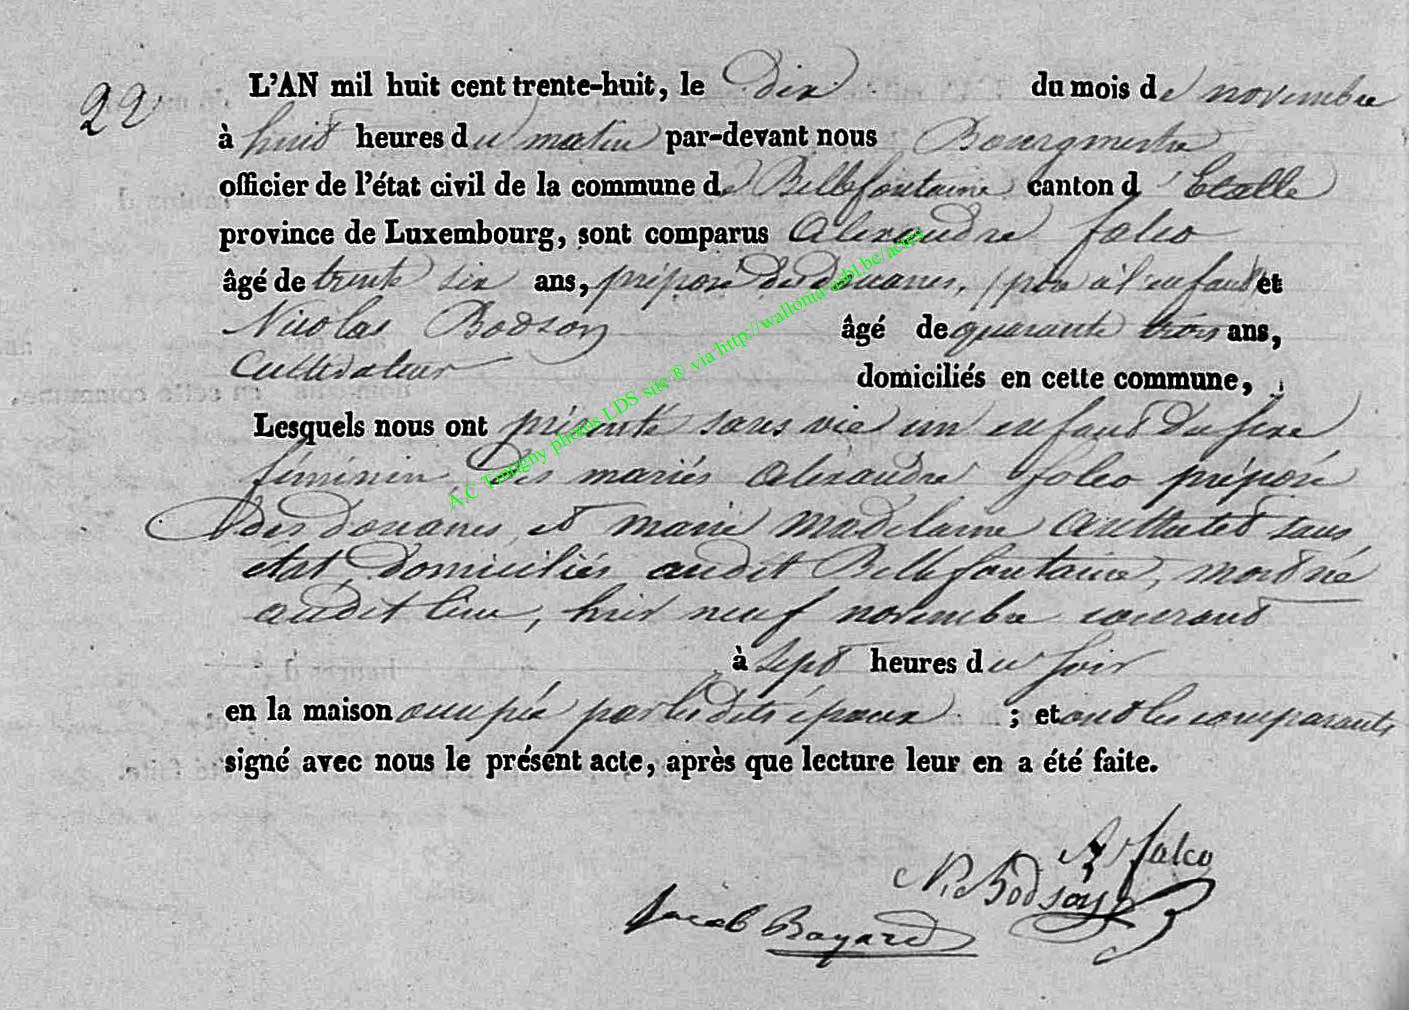 22
L'AN mil huit cent trente-huit, le Dix du mois de novembre
à huit heures du matin par-devant nous Bourgmestre
officier de l'état civil de la commune de Bellefontaine canton d'Etalle
province de Luxembourg, sont comparus Alexandre folco
âgé de trente six ans, préposé des Douanes, (père à l'enfant et
Nicolas Bodson âgé de quarante trois ans,
Cultivateur domiciliés en cette commune,
Lesquels nous ont présenté sans vie un enfant Du sexe
féminin, des mariés Alexandre folco préposé
des Douanes, et marie madelaine sans
état, Domiciliés audit Bellefontaine, mort né
audit lieu, hier neuf novembre courant
à sept heures du soir
en la maison occupée par les dits époux ; et ont les comparants
signé avec nous le présent acte, après que lecture leur en a été faite.
folco
N. Bodson
Jacob Bayard
A.C Tintigny photos LDS site ® via http://wallonia-asbl.be/actes